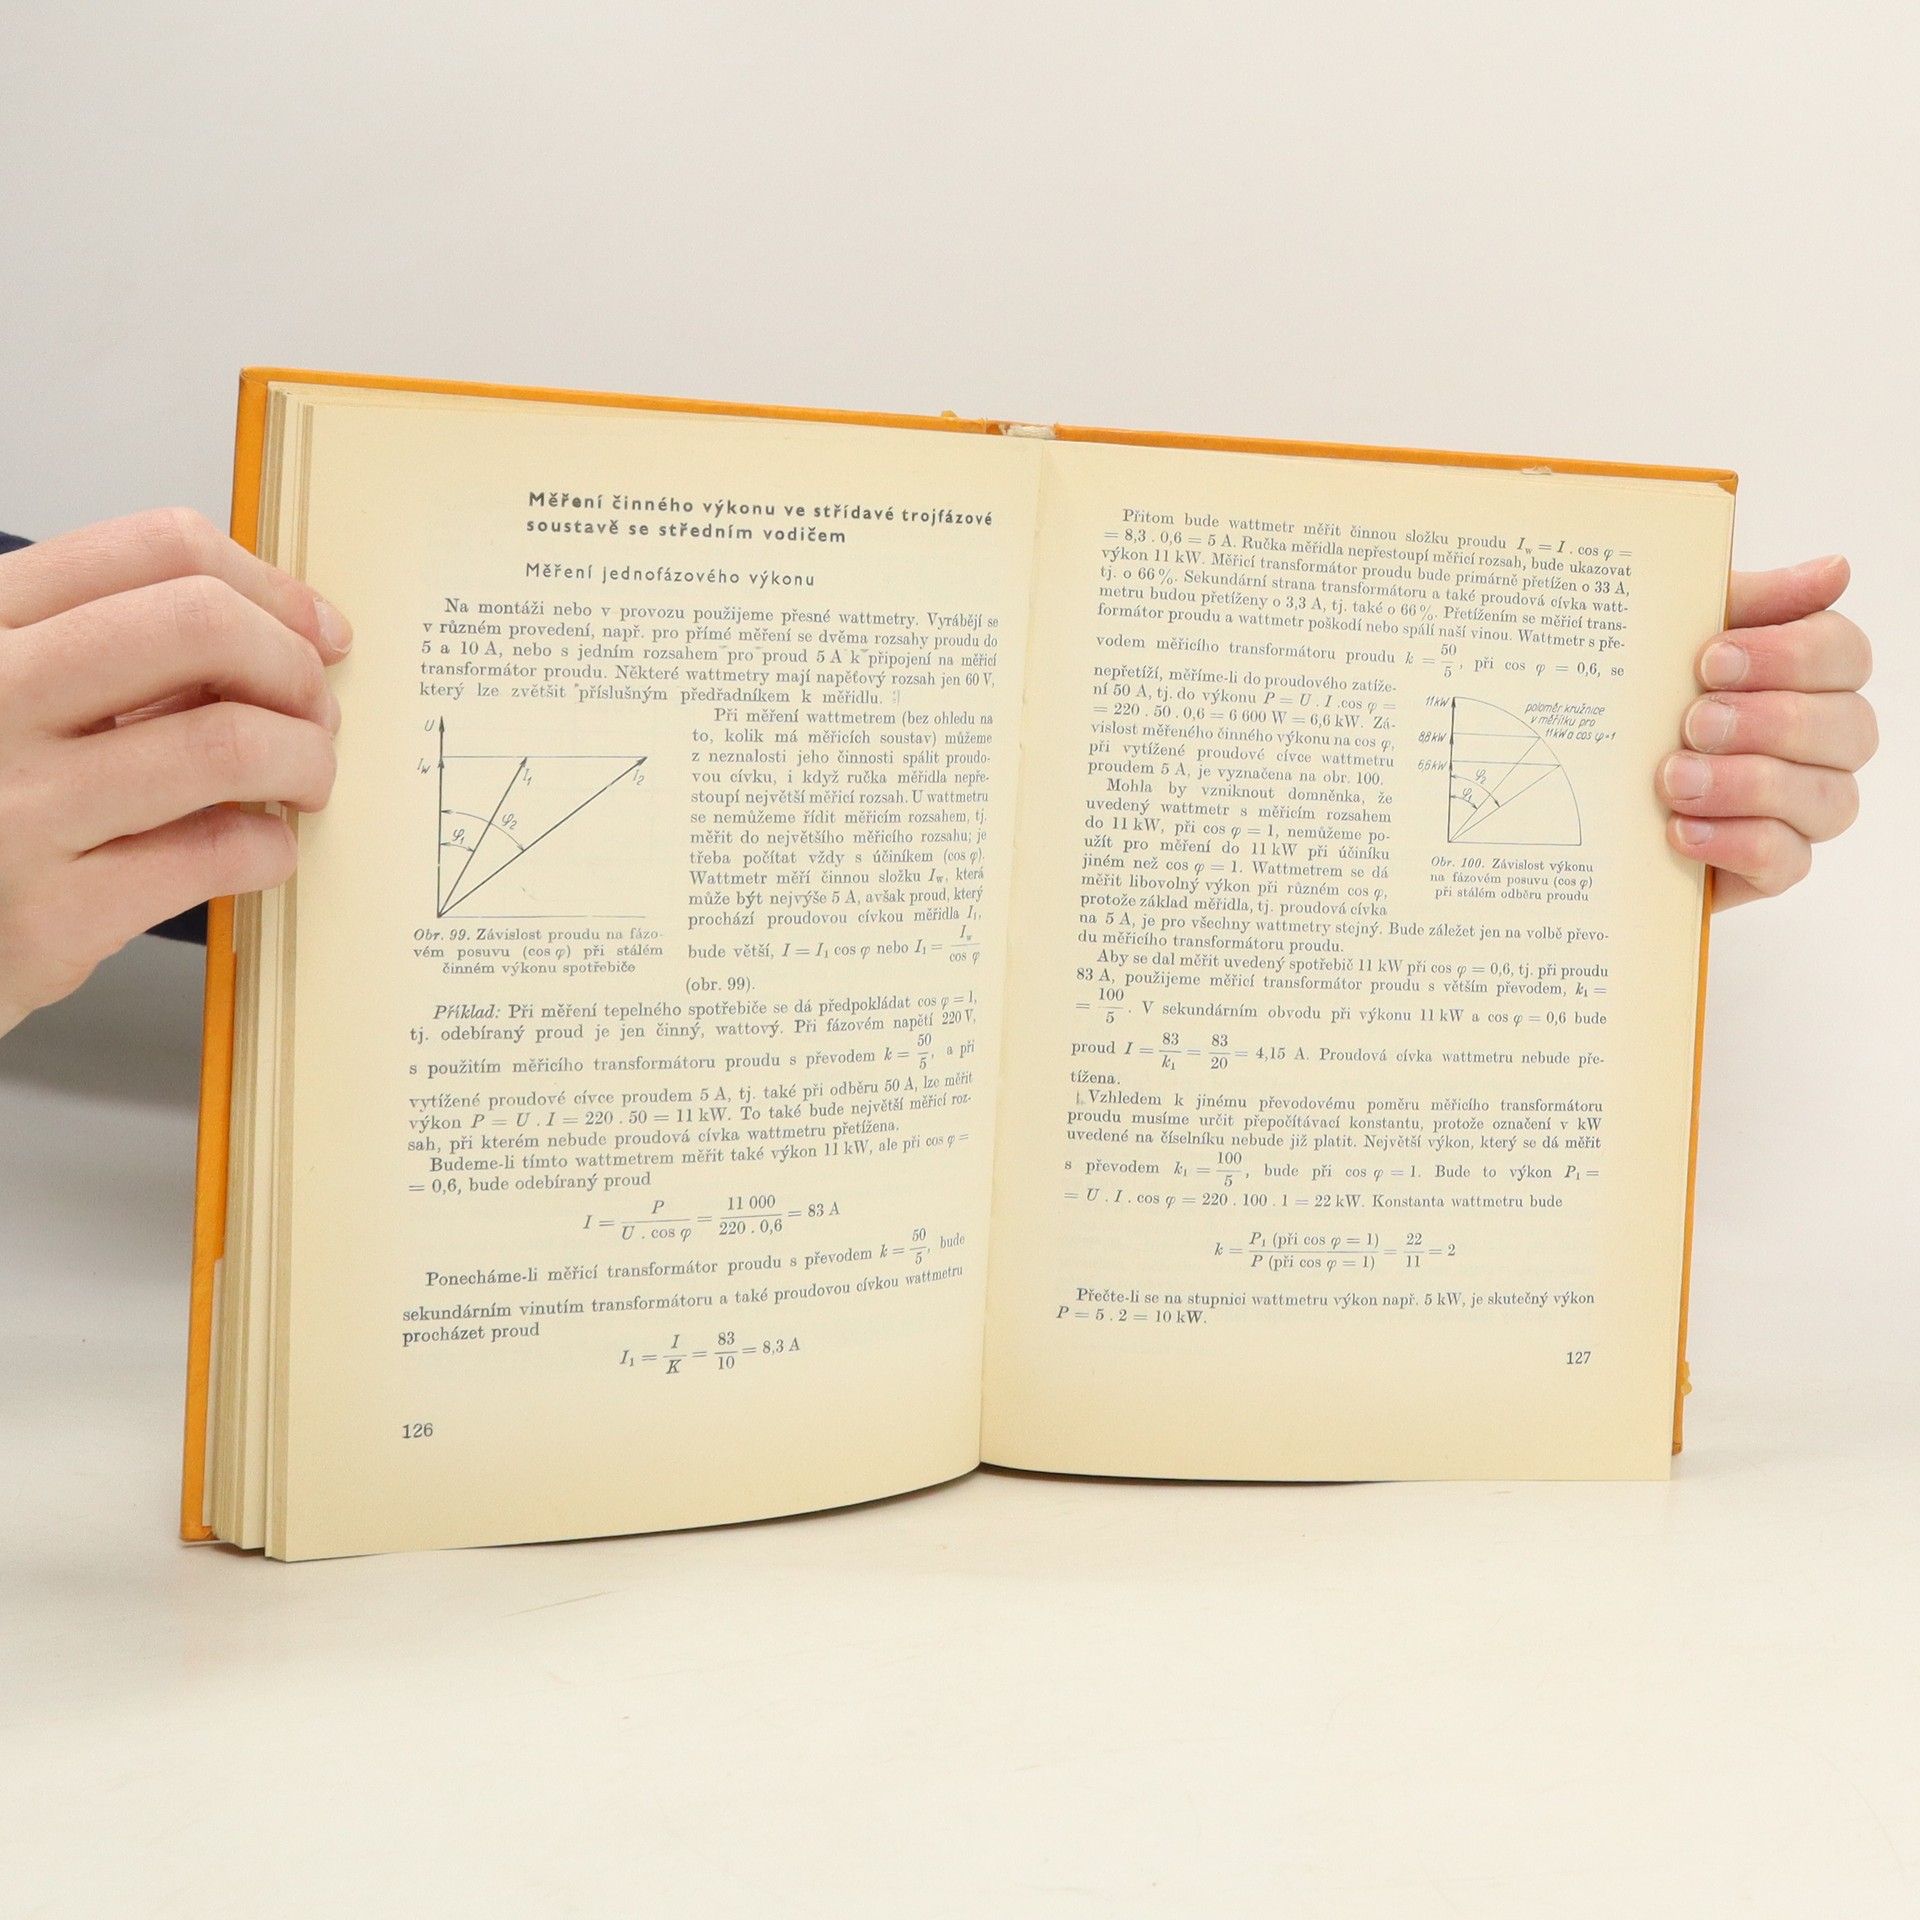 Měření činného výkonu ve střídavé trojfázové
soustavě se středním vodičem
Měření jednofázového výkonu
Na montáži nebo v provozu použijeme přesné wattmetry. Vyrábějí se
v různém provedení, např. pro přímé měření se dvěma rozsahy proudu do
5 a 10 A, nebo s jedním rozsahem pro proud 5 A k připojení na měřicí
transformátor proudu. Některé wattmetry mají napěťový rozsah jen 60 V,
který lze zvětšit příslušným předřadníkem k měřidlu.
U
I_w
I_1
I_2
φ_1
φ_2
Obr. 99. Závislost proudu na fázo-
vém posuvu (cos φ) při stálém
činném výkonu spotřebiče
Při měření wattmetrem (bez ohledu na
to, kolik má měřicích soustav) můžeme
z neznalosti jeho činnosti spálit proudo-
vou cívku, i když ručka měřidla nepře-
stoupí největší měřicí rozsah. U wattmetru
se nemůžeme řídit měřicím rozsahem, tj.
měřit do největšího měřicího rozsahu; je
třeba počítat vždy s účiníkem (cos φ).
Wattmetr měří činnou složku I_w, která
může být nejvýše 5 A, avšak proud, který
prochází proudovou cívkou měřidla I_1,
bude větší, I = I_1 cos φ nebo I_1 = I_w / cos φ
(obr. 99).
Příklad: Při měření tepelného spotřebiče se dá předpokládat cos φ = 1,
tj. odebíraný proud je jen činný, wattový. Při fázovém napětí 220 V,
s použitím měřicího transformátoru proudu s převodem k = 50/5, a při
vytížené proudové cívce proudem 5 A, tj. také při odběru 50 A, lze měřit
výkon P = U . I = 220 . 50 = 11 kW. To také bude největší měřicí roz-
sah, při kterém nebude proudová cívka wattmetru přetížena.
Budeme-li tímto wattmetrem měřit také výkon 11 kW, ale při cos φ =
= 0,6, bude odebíraný proud
I = P / U . cos φ = 11 000 / 220 . 0,6 = 83 A
Ponecháme-li měřicí transformátor proudu s převodem k = 50/5, bude
sekundárním vinutím transformátoru a také proudovou cívkou wattmetru
procházet proud
I_1 = I / K = 83 / 10 = 8,3 A
126
Přitom bude wattmetr měřit činnou složku proudu I_w = I . cos φ =
= 8,3 . 0,6 = 5 A. Ručka měřidla nepřestoupí měřicí rozsah, bude ukazovat
výkon 11 kW. Měřicí transformátor proudu bude primárně přetížen o 33 A,
tj. o 66 %. Sekundární strana transformátoru a také proudová cívka watt-
metru budou přetíženy o 3,3 A, tj. také o 66 %. Přetížením se měřicí trans-
formátor proudu a wattmetr poškodí nebo spálí naší vinou. Wattmetr s pře-
vodem měřicího transformátoru proudu k = 50/5, při cos φ = 0,6, se
nepřetíží, měříme-li do proudového zatíže-
ní 50 A, tj. do výkonu P = U . I . cos φ =
= 220 . 50 . 0,6 = 6 600 W = 6,6 kW. Zá-
vislost měřeného činného výkonu na cos φ,
při vytížené proudové cívce wattmetru
proudem 5 A, je vyznačena na obr. 100.
Mohla by vzniknout domněnka, že
uvedený wattmetr s měřicím rozsahem
do 11 kW, při cos φ = 1, nemůžeme po-
užít pro měření do 11 kW při účiníku
jiném než cos φ = 1. Wattmetrem se dá
měřit libovolný výkon při různém cos φ,
protože základ měřidla, tj. proudová cívka
11 kW
8,8 kW
6,6 kW
poloměr kružnice
v měřítku pro
11 kW a cos φ=1
φ_2
φ_1
Obr. 100. Závislost výkonu
na fázovém posuvu (cos φ)
při stálém odběru proudu
na 5 A, je pro všechny wattmetry stejný. Bude záležet jen na volbě převo-
du měřicího transformátoru proudu.
Aby se dal měřit uvedený spotřebič 11 kW při cos φ = 0,6, tj. při proudu
83 A, použijeme měřicí transformátor proudu s větším převodem, k_1 =
= 100/5. V sekundárním obvodu při výkonu 11 kW a cos φ = 0,6 bude
proud I = 83/k_1 = 83/20 = 4,15 A. Proudová cívka wattmetru nebude pře-
tížena.
Vzhledem k jinému převodovému poměru měřicího transformátoru
proudu musíme určit přepočítávací konstantu, protože označení v kW
uvedené na číselníku nebude již platit. Největší výkon, který se dá měřit
s převodem k_1 = 100/5, bude při cos φ = 1. Bude to výkon P_1 =
= U . I . cos φ = 220 . 100 . 1 = 22 kW. Konstanta wattmetru bude
k = P_1 (při cos φ = 1) / P (při cos φ = 1) = 22 / 11 = 2
Přečte-li se na stupnici wattmetru výkon např. 5 kW, je skutečný výkon
P = 5 . 2 = 10 kW.
127